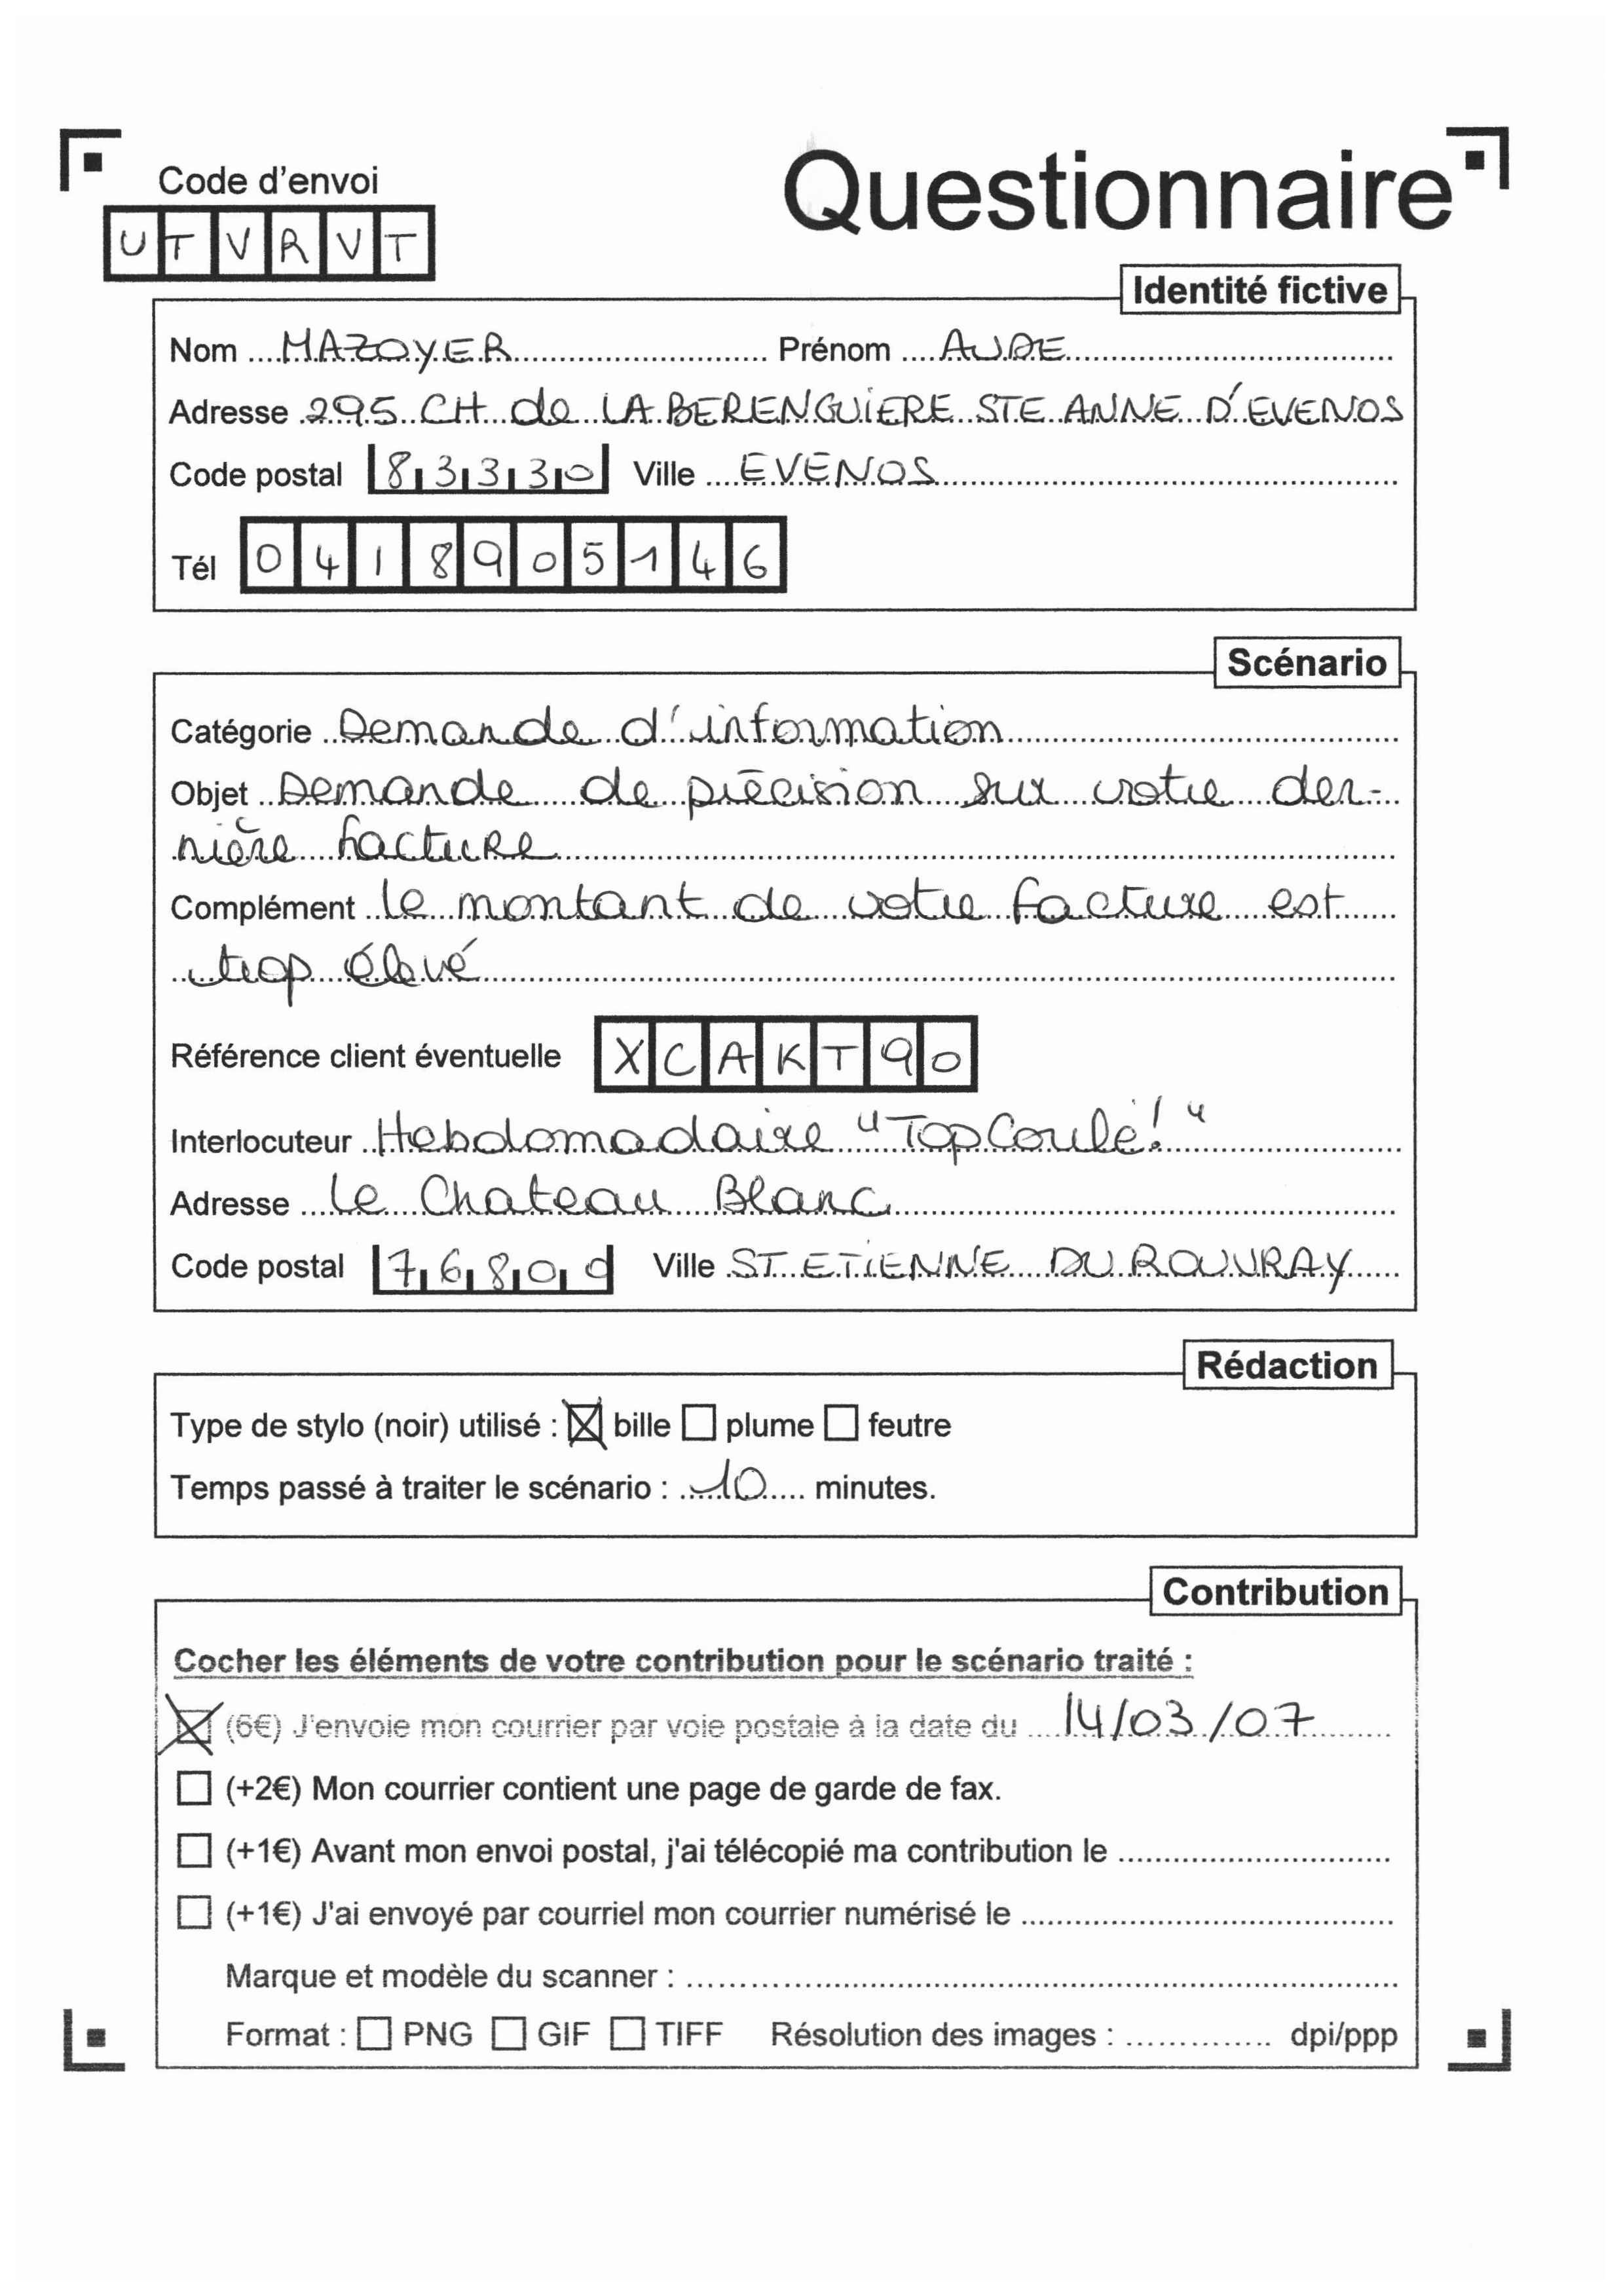 Code d'envoi
Questionnaire
UTVRVT
Identité fictive
Nom MAZOYER Prénom AUDE
Adresse 295 CH de LA BERENGUIERE STE ANNE D'EVENOS
Code postal 83330 Ville EVENOS
Tél 0418905146
Scénario
Catégorie Demande d'information
Objet Demande de précision sur votre der-
nière facture
Complément le montant de votre facture est
trop élevé
Référence client éventuelle XCAKT90
Interlocuteur Hebdomadaire "Top Coulé!"
Adresse Le Chateau Blanc
Code postal 76800 Ville ST ETIENNE DU ROUVRAY
Rédaction
Type de stylo (noir) utilisé : bille plume feutre
Temps passé à traiter le scénario : 10 minutes.
Contribution
Cocher les éléments de votre contribution pour le scénario traité :
(6€) J'envoie mon courrier par voie postale à la date du 14/03/07
(+2€) Mon courrier contient une page de garde de fax.
(+1€) Avant mon envoi postal, j'ai télécopié ma contribution le
(+1€) J'ai envoyé par courriel mon courrier numérisé le
Marque et modèle du scanner :
Format : PNG GIF TIFF Résolution des images : dpi/ppp